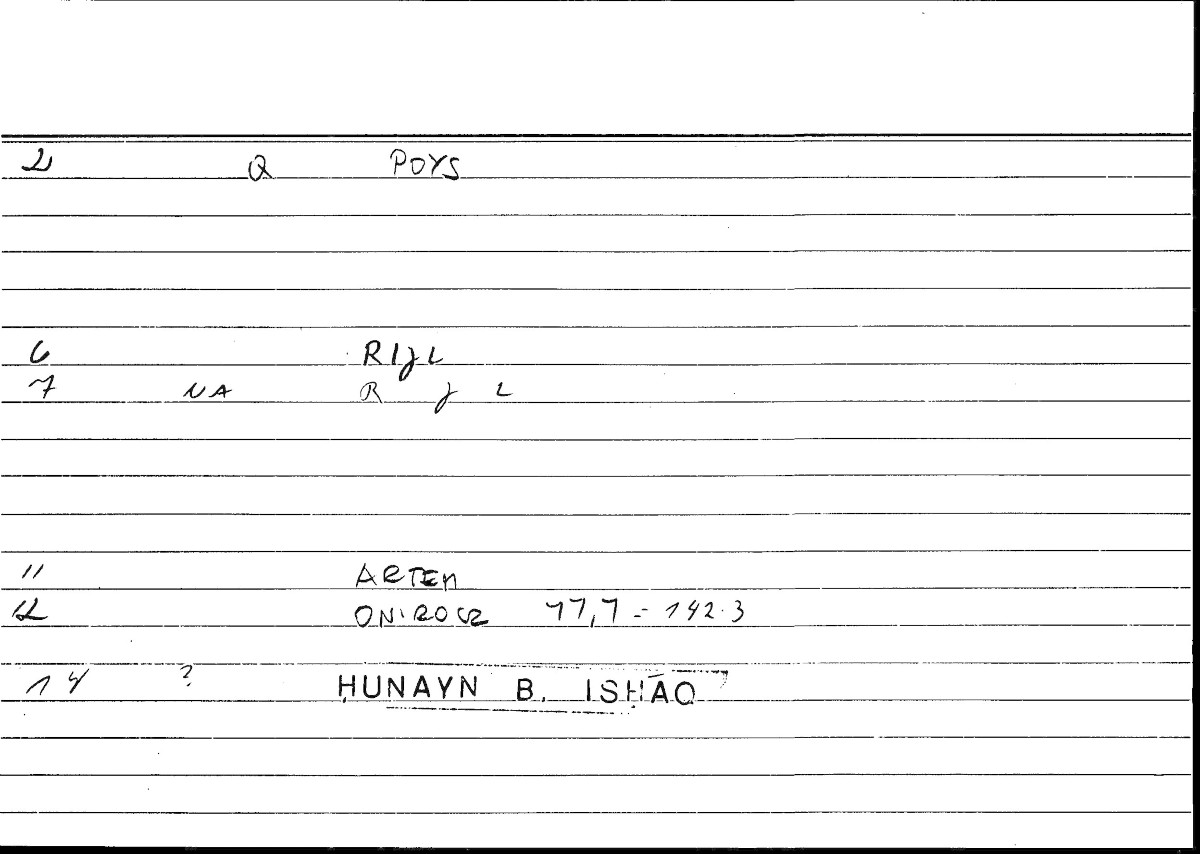 2 Q POYS
6 RIJL
7 NA R J L
11 ARTEM
12 ONIROCR 77,7 = 142.3
14 ? ḤUNAYN B. ISḤĀQ